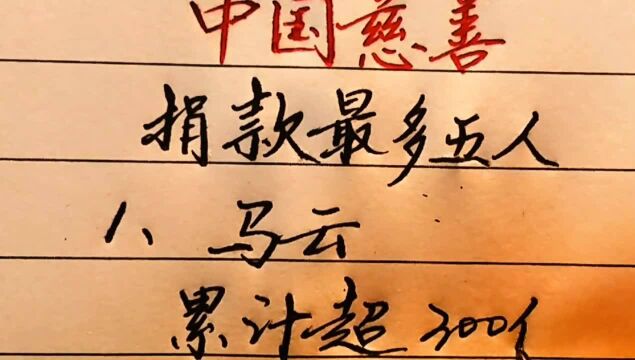 中国慈善
捐款最多五人
1、马云
累计超300亿